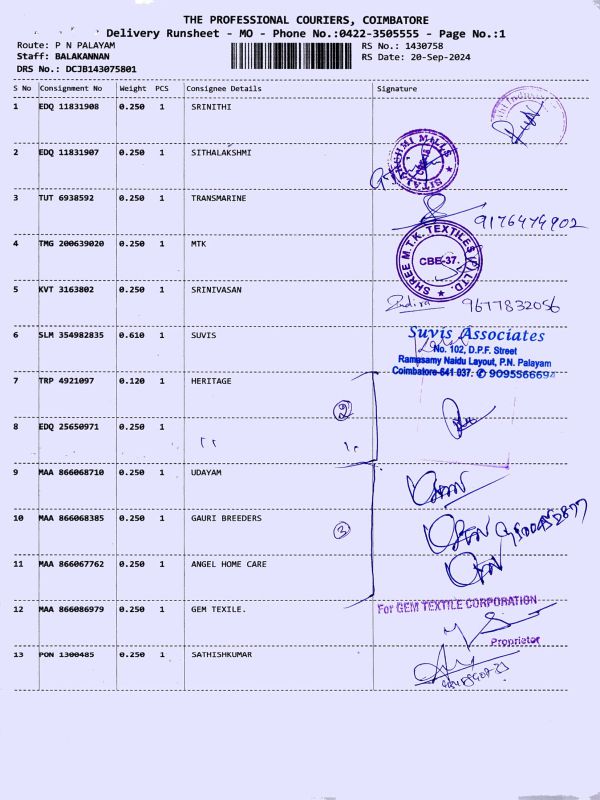 THE PROFESSIONAL COURIERS, COIMBATORE
Delivery Runsheet - MO - Phone No.:0422-3505555 - Page No.:1
Route: P N PALAYAM RS No.: 1430758
Staff: BALAKANNAN RS Date: 20-Sep-2024
DRS No.: DCJB143075801
S No Consignment No Weight PCS Consignee Details Signature
1 EDQ 11831908 0.250 1 SRINITHI
2 EDQ 11831907 0.250 1 SITHALAKSHMI
SITALAKSHMI MILLS
3 TUT 6938592 0.250 1 TRANSMARINE
9176474902
4 TMG 200639020 0.250 1 MTK
SHREE M.T.K. TEXTILES (P) LTD.
CBE-37.
5 KVT 3163802 0.250 1 SRINIVASAN
Indira 9677832056
6 SLM 354982835 0.610 1 SUVIS
Suvis Associates
No. 102, D.P.F. Street
Ramasamy Naidu Layout, P.N. Palayam
Coimbatore-641 037. ✆ 9095566694
7 TRP 4921097 0.120 1 HERITAGE
2
8 EDQ 25650971 0.250 1
9 MAA 866068710 0.250 1 UDAYAM
10 MAA 866068385 0.250 1 GAURI BREEDERS
3
11 MAA 866067762 0.250 1 ANGEL HOME CARE
12 MAA 866086979 0.250 1 GEM TEXILE.
For GEM TEXTILE CORPORATION
Proprietor
13 PON 1300485 0.250 1 SATHISHKUMAR